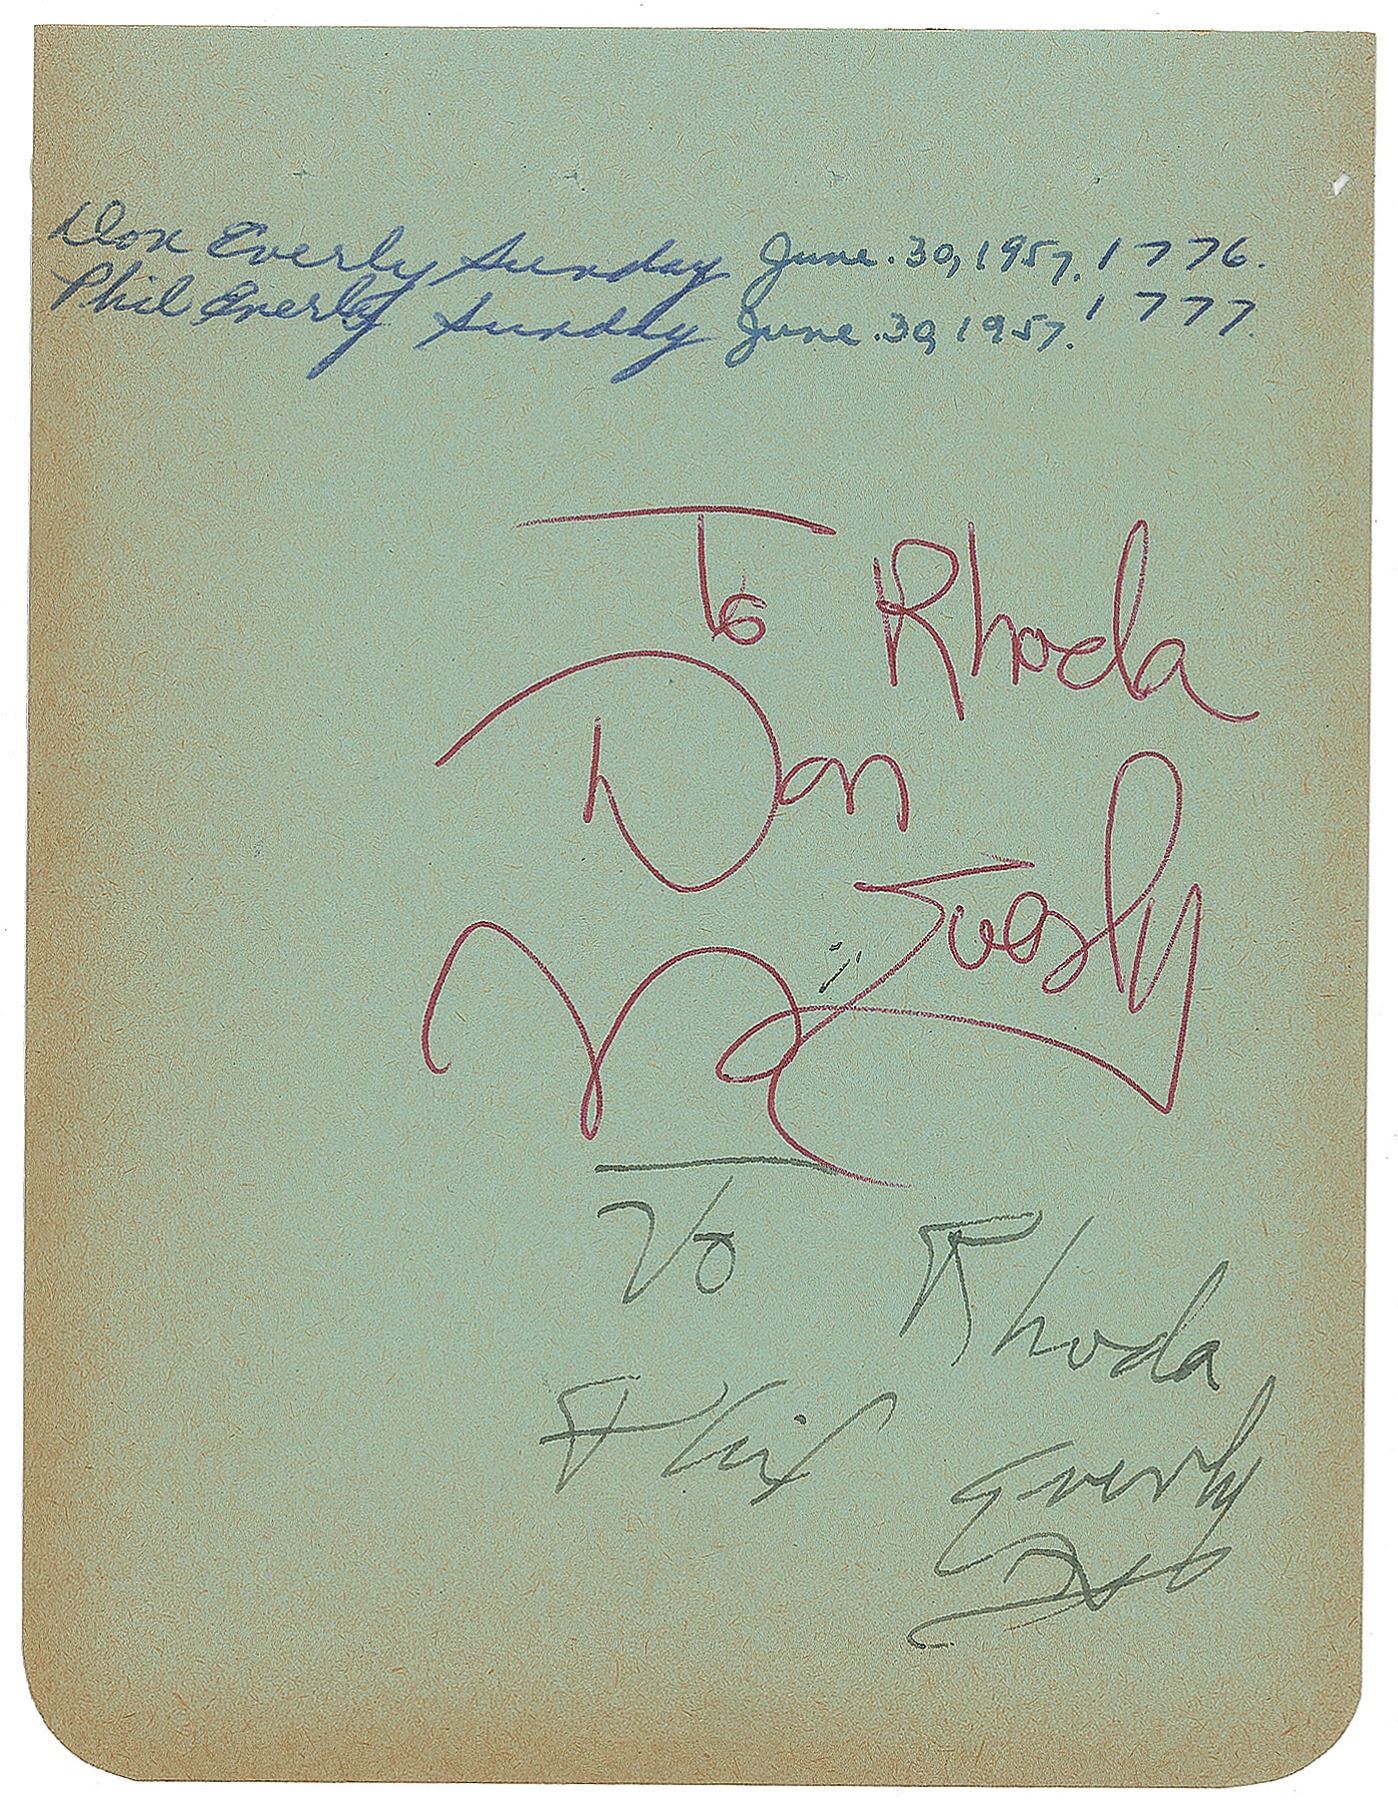 Don Everly Sunday June. 30, 1957. 1776.
Phil Everly Sunday June. 30, 1957. 1777.
To Rhoda
Don
Everly
To Rhoda
Phil Everly